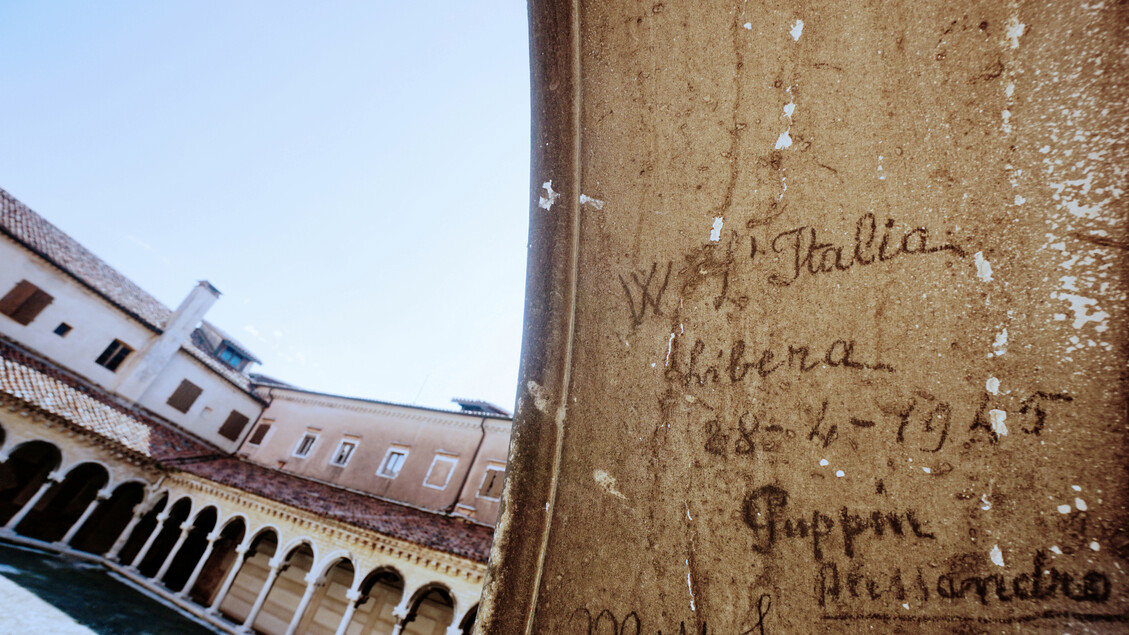 W l'Italia
Libera
28-4-1945
Guppin
Alessandro